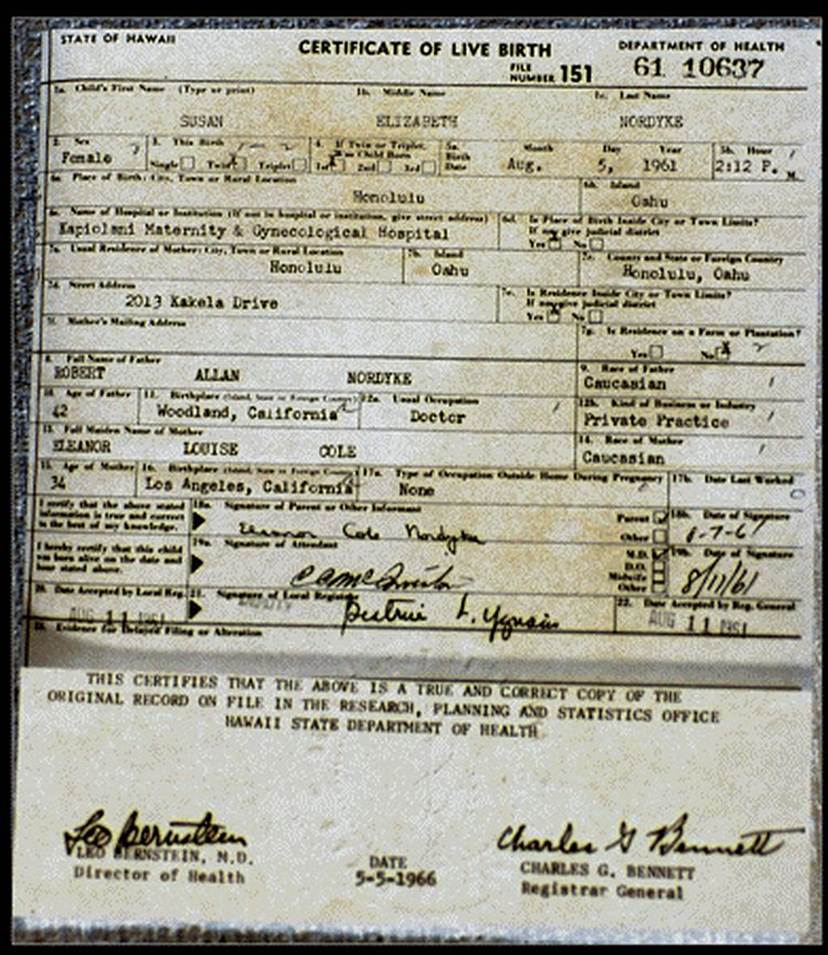 STATE OF HAWAII CERTIFICATE OF LIVE BIRTH DEPARTMENT OF HEALTH
FILE NUMBER 151 61 10637
1a. Child's First Name (Type or print) 1b. Middle Name 1c. Last Name
SUSAN ELIZABETH NORDYKE
2. Sex 3. This Birth 4. If Twin or Triplet, Was Child Born 5a. Birth Date Month Day Year 5b. Hour
Female Single Twin Triplet 1st 2nd 3rd Aug. 5, 1961 2:12 P. M.
6a. Place of Birth: City, Town or Rural Location 6b. Island
Honolulu Oahu
6c. Name of Hospital or Institution (If not in hospital or institution, give street address) 6d. Is Place of Birth Inside City or Town Limits? If no, give judicial district
Kapiolani Maternity & Gynecological Hospital Yes No
7a. Usual Residence of Mother: City, Town or Rural Location 7b. Island 7c. County and State or Foreign Country
Honolulu Oahu Honolulu, Oahu
7d. Street Address 7e. Is Residence Inside City or Town Limits? If no, give judicial district
2013 Kakela Drive Yes No
7f. Mother's Mailing Address 7g. Is Residence on a Farm or Plantation?
Yes No
8. Full Name of Father 9. Race of Father
ROBERT ALLAN NORDYKE Caucasian
10. Age of Father 11. Birthplace (Island, State or Foreign Country) 12a. Usual Occupation 12b. Kind of Business or Industry
42 Woodland, California Doctor Private Practice
13. Full Maiden Name of Mother 14. Race of Mother
ELEANOR LOUISE COLE Caucasian
15. Age of Mother 16. Birthplace (Island, State or Foreign Country) 17a. Type of Occupation Outside Home During Pregnancy 17b. Date Last Worked
34 Los Angeles, California None
I certify that the above stated information is true and correct to the best of my knowledge. 18a. Signature of Parent or Other Informant Parent Other 18b. Date of Signature
Eleanor Cole Nordyke 8-7-61
I hereby certify that this child was born alive on the date and hour stated above. 19a. Signature of Attendant M.D. D.O. Midwife Other 19b. Date of Signature
8/11/61
20. Date Accepted by Local Reg. 21. Signature of Local Registrar 22. Date Accepted by Reg. General
AUG 11 1961 AUG 11 1961
23. Evidence for Delayed Filing or Alteration
THIS CERTIFIES THAT THE ABOVE IS A TRUE AND CORRECT COPY OF THE
ORIGINAL RECORD ON FILE IN THE RESEARCH, PLANNING AND STATISTICS OFFICE
HAWAII STATE DEPARTMENT OF HEALTH
Leo Bernstein Charles G Bennett
LEO BERNSTEIN, M.D. DATE CHARLES G. BENNETT
Director of Health 5-5-1966 Registrar General